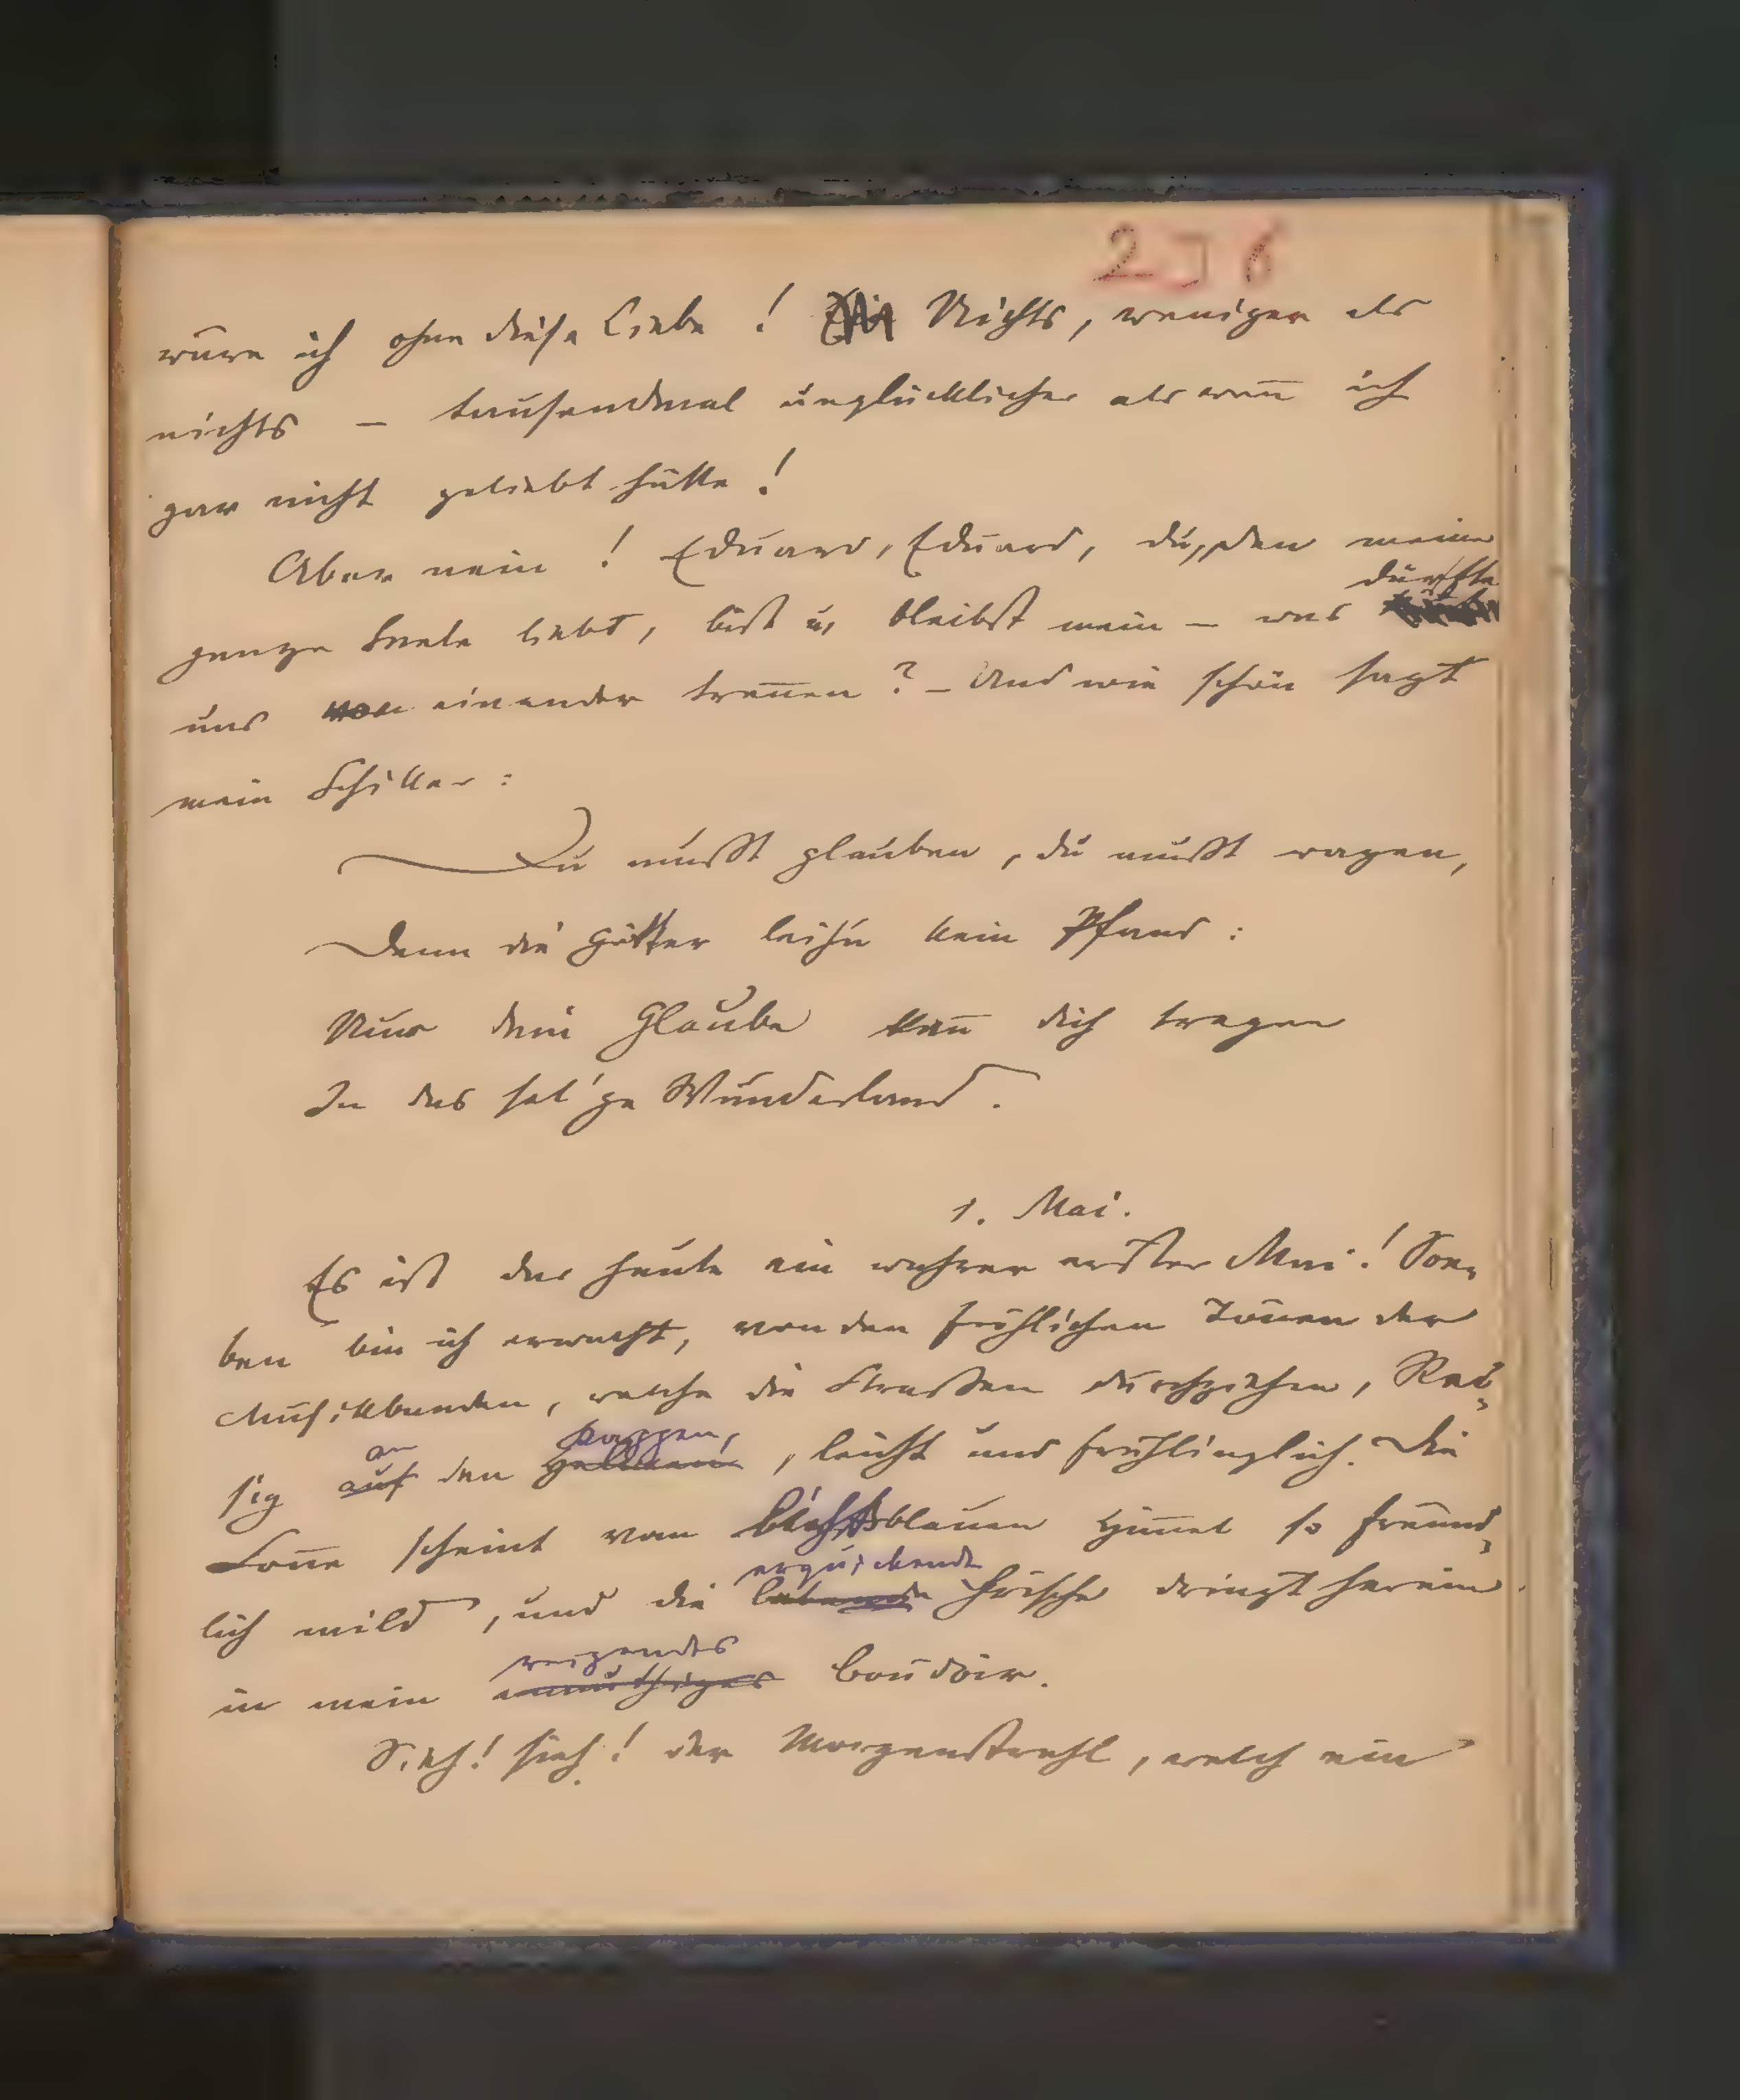 236
wäre ich ohne diese Liebe! Nichts, weniger als
nichts – tausendmal unglücklicher als wen̄ ich
gar nicht geliebt hätte!
Aber nein! Eduard, Eduard, du, den meine
dürfte
ganze Seele liebt, bist u. bleibst mein – was
uns von einander tren̄en? – Und wie schön sagt
mein Schiller:
Du mußt glauben, du mußt wagen,
Denn die Götter leihn kein Pfand:
Nur dein Glaube kan̄ dich tragen
In das sel'ge Wunderland.
1. Mai.
Es ist das heute ein wahrer erster Mai! Soe-
ben bin ich erwacht, von den fröhlichen Tönen der
Musikbanden, welche die Straßen durchziehen, Rei-
an Kappen,
sig auf den , leicht und frühlinglich. Die
Son̄e scheint vom blauen Him̄el so freund-
erquickende
lich mild, und die labende Frische dringt herein
reizendes
in mein anmuthiges Boudoir.
Sieh! sieh! der Morgenstrahl, welch ein